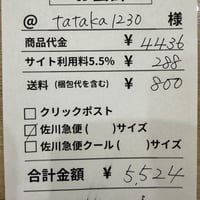 @ tataka1230 様
商品代金 ¥ 4436
サイト利用料5.5% ¥ 288
送料(梱包代を含む) ¥ 800
クリックポスト
佐川急便( )サイズ
佐川急便クール( )サイズ
合計金額 ¥ 5,524